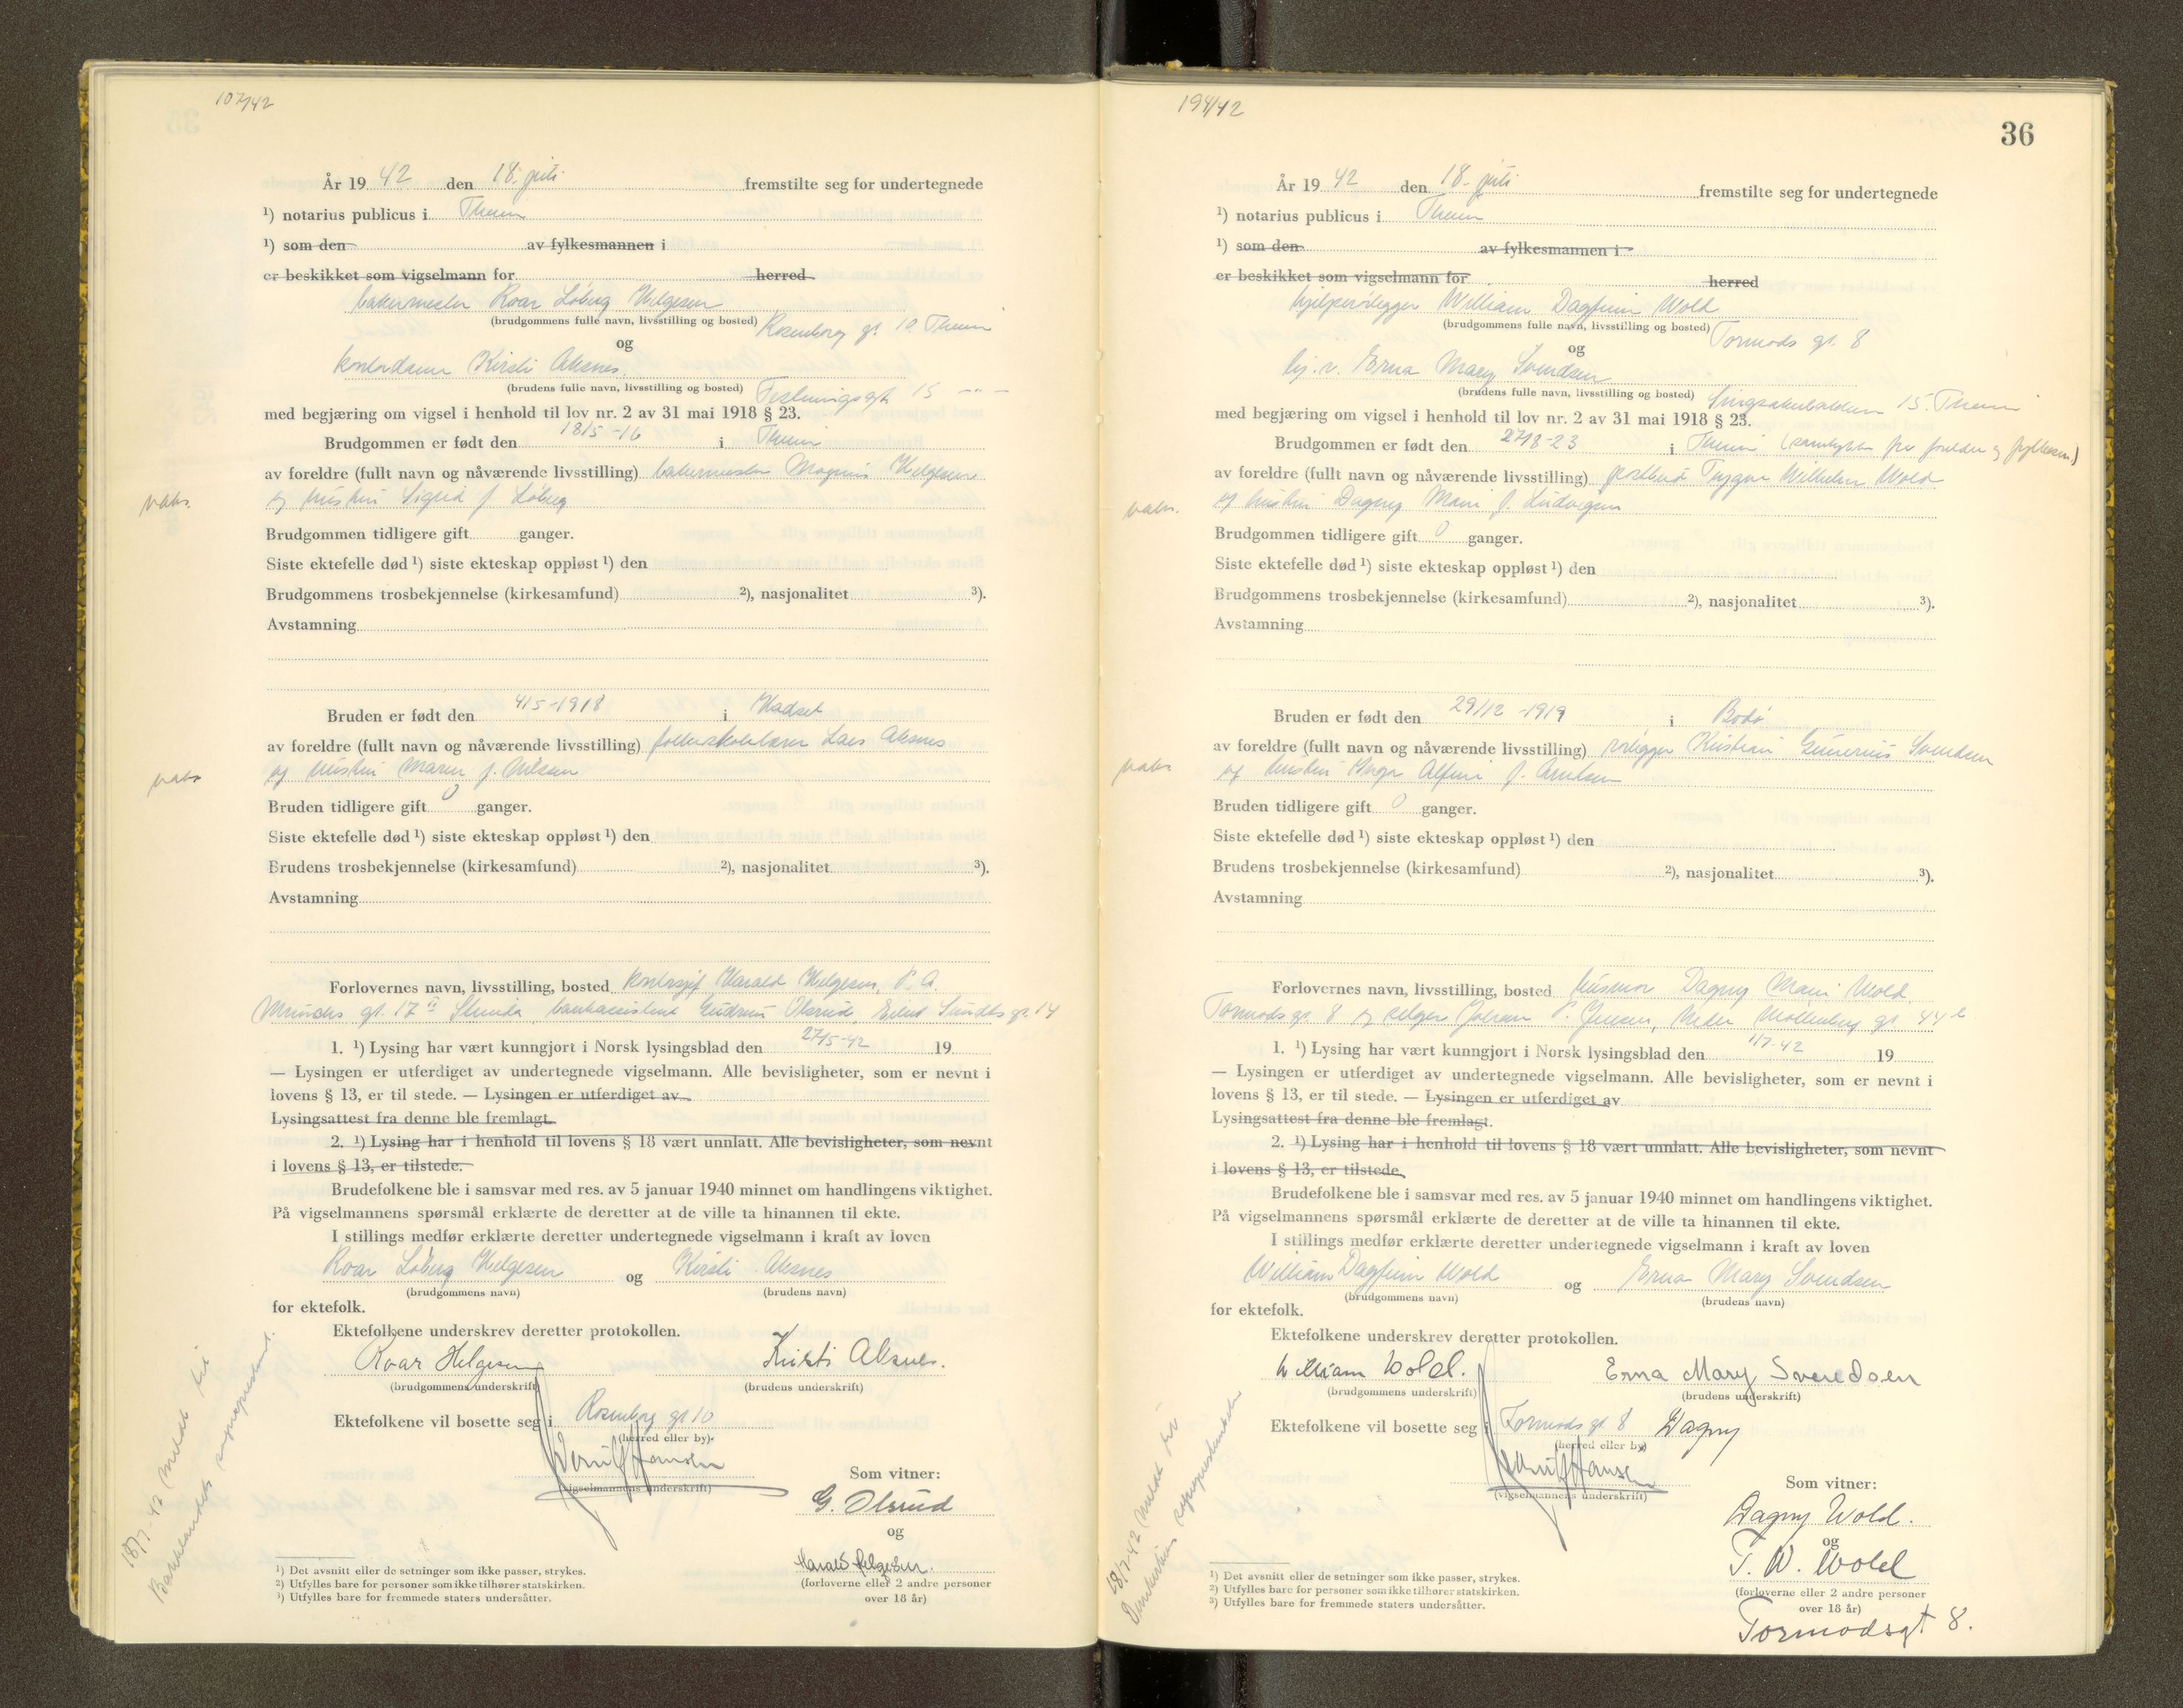 107/42
År 19 42 den 18. juli fremstilte seg for undertegnede
¹) notarius publicus i Theim
¹) som den av fylkesmannen i
er beskikket som vigselmann for herred
bakermester Roar Löberg Helgesen
(brudgommens fulle navn, livsstilling og bosted) Rosenborg gt. 10. Theim
og
kontordame Kirsti Aksnes
(brudens fulle navn, livsstilling og bosted) Festningsgt 15 -"-
med begjæring om vigsel i henhold til lov nr. 2 av 31 mai 1918 § 23.
Brudgommen er født den 18/5 -16 i Theim
av foreldre (fullt navn og nåværende livsstilling) bakermester Magnus Helgesen
og hustru Sigrid f. Löberg
vabs.
Brudgommen tidligere gift ganger.
Siste ektefelle død ¹) siste ekteskap oppløst ¹) den
Brudgommens trosbekjennelse (kirkesamfund) ²), nasjonalitet ³).
Avstamning
Bruden er født den 4/5 -1918 i Hadsel
av foreldre (fullt navn og nåværende livsstilling) folkeskolelærer Lars Aksnes
og hustru Maren f. Nilsen
vabs
Bruden tidligere gift 0 ganger.
Siste ektefelle død ¹) siste ekteskap oppløst ¹) den
Brudens trosbekjennelse (kirkesamfund) ²), nasjonalitet ³).
Avstamning
Forlovernes navn, livsstilling, bosted kontorsjef Harald Helgesen, P. A.
Munchs gt. 17 II Strinda, bankassistent Gudrun Olsrud, Eilert Sundts gt. 14
1. ¹) Lysing har vært kunngjort i Norsk lysingsblad den 27/5-42 19
— Lysingen er utferdiget av undertegnede vigselmann. Alle bevisligheter, som er nevnt i
lovens § 13, er til stede. — Lysingen er utferdiget av
Lysingsattest fra denne ble fremlagt.
2. ¹) Lysing har i henhold til lovens § 18 vært unnlatt. Alle bevisligheter, som nevnt
i lovens § 13, er tilstede.
Brudefolkene ble i samsvar med res. av 5 januar 1940 minnet om handlingens viktighet.
På vigselmannens spørsmål erklærte de deretter at de ville ta hinannen til ekte.
I stillings medfør erklærte deretter undertegnede vigselmann i kraft av loven
Roar Löberg Helgesen og Kirsti Aksnes
(brudgommens navn) (brudens navn)
for ektefolk.
Ektefolkene underskrev deretter protokollen.
Roar Helgesen Kirsti Aksnes.
(brudgommens underskrift) (brudens underskrift)
Ektefolkene vil bosette seg i Rosenborg gt 10
(herred eller by)
Hansen
(vigselmannens underskrift)
Som vitner:
G. Olsrud
og
Harald Helgesen.
(forloverne eller 2 andre personer
over 18 år)
18/7-42 meldt til
Bakklandets sogneprestemb.
¹) Det avsnitt eller de setninger som ikke passer, strykes.
²) Utfylles bare for personer som ikke tilhører statskirken.
³) Utfylles bare for fremmede staters undersåtter.
194/42
36
År 19 42 den 18. juli fremstilte seg for undertegnede
¹) notarius publicus i Theim
¹) som den av fylkesmannen i
er beskikket som vigselmann for herred
hjelperörlegger William Dagfinn Wold
(brudgommens fulle navn, livsstilling og bosted) Tormods gt. 8
og
hj. v. Erna Mary Svendsen
(brudens fulle navn, livsstilling og bosted) Singsakerbakken 15. Theim
med begjæring om vigsel i henhold til lov nr. 2 av 31 mai 1918 § 23.
Brudgommen er født den 27/8-23 i Theim (samtykke fra foreldre og fylkesm.)
av foreldre (fullt navn og nåværende livsstilling) postbud Trygve Wilhelm Wold
og hustru Dagny Marie f. Ludvigsen
vabs.
Brudgommen tidligere gift 0 ganger.
Siste ektefelle død ¹) siste ekteskap oppløst ¹) den
Brudgommens trosbekjennelse (kirkesamfund) ²), nasjonalitet ³).
Avstamning
Bruden er født den 29/12 -1919 i Bodö
av foreldre (fullt navn og nåværende livsstilling) rörlegger Kristian Gunerius Svendsen
og hustru Inga Alfine f. Arntsen
vabs
Bruden tidligere gift 0 ganger.
Siste ektefelle død ¹) siste ekteskap oppløst ¹) den
Brudens trosbekjennelse (kirkesamfund) ²), nasjonalitet ³).
Avstamning
Forlovernes navn, livsstilling, bosted husmor Dagny Marie Wold
Tormods gt. 8 og selger Johan P. Jensen, Neder Möllenberg gt 44 b
1. ¹) Lysing har vært kunngjort i Norsk lysingsblad den 1/7-42 19
— Lysingen er utferdiget av undertegnede vigselmann. Alle bevisligheter, som er nevnt i
lovens § 13, er til stede. — Lysingen er utferdiget av
Lysingsattest fra denne ble fremlagt.
2. ¹) Lysing har i henhold til lovens § 18 vært unnlatt. Alle bevisligheter, som nevnt
i lovens § 13, er tilstede.
Brudefolkene ble i samsvar med res. av 5 januar 1940 minnet om handlingens viktighet.
På vigselmannens spørsmål erklærte de deretter at de ville ta hinannen til ekte.
I stillings medfør erklærte deretter undertegnede vigselmann i kraft av loven
William Dagfinn Wold og Erna Mary Svendsen
(brudgommens navn) (brudens navn)
for ektefolk.
Ektefolkene underskrev deretter protokollen.
William Wold. Erna Mary Svendsen
(brudgommens underskrift) (brudens underskrift)
Ektefolkene vil bosette seg i Tormods gt 8 Dagny
(herred eller by)
Hansen
(vigselmannens underskrift)
Som vitner:
Dagny Wold.
og
T. W. Wold
(forloverne eller 2 andre personer
over 18 år)
Tormodsgt 8.
18/7-42 meldt til
Domkirkens sogneprestembede
¹) Det avsnitt eller de setninger som ikke passer, strykes.
²) Utfylles bare for personer som ikke tilhører statskirken.
³) Utfylles bare for fremmede staters undersåtter.